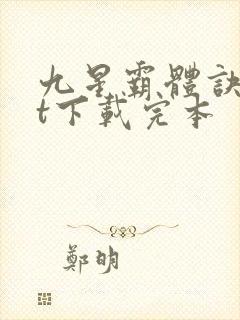 九星霸體訣
t下載完本
鄭明